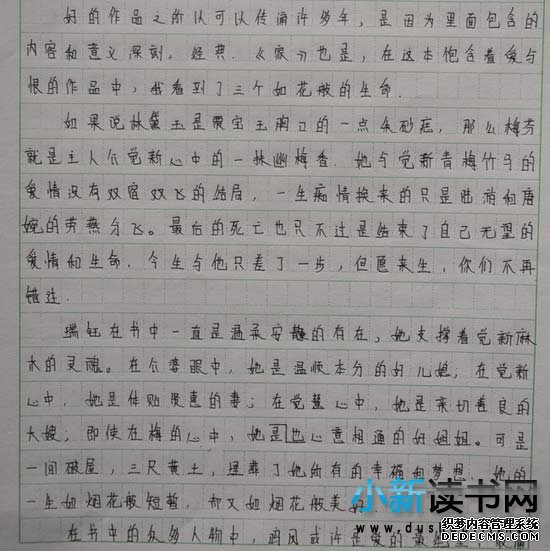 好的作品之所以可以传诵许多年，是因为里面包含的
内容和意义深刻，经典.《家》也是，在这本饱含着爱与
恨的作品中，我看到了三个如花般的生命.
如果说林黛玉是贾宝玉胸口的一点朱砂痣，那么梅芬
就是主人公觉新心中的一株幽梅香.她与觉新青梅竹马的
爱情没有双宿双飞的结局，一生痴情换来的只是陆游和唐
婉的劳燕分飞。最后的死亡也只不过是结束了自己无望的
爱情和生命.今生与他只差了一步，但愿来生，你们不再
错过.
瑞钰在书中一直是温柔安静的存在，她支撑着觉新麻
木的灵魂。在公婆眼中，她是温顺本分的好儿媳；在觉新
心中，她是体贴贤惠的妻；在觉慧心中，她是亲切善良的
大嫂；即使在梅的心中，她是也心意相通的好姐姐。可是
一间破屋，三尺黄土，埋葬了她所有的幸福和梦想.她的
一生如烟花般短暂，却又如烟花般美好
在书中的众多人物中，鸣凤或许是爱的最
小新读书网